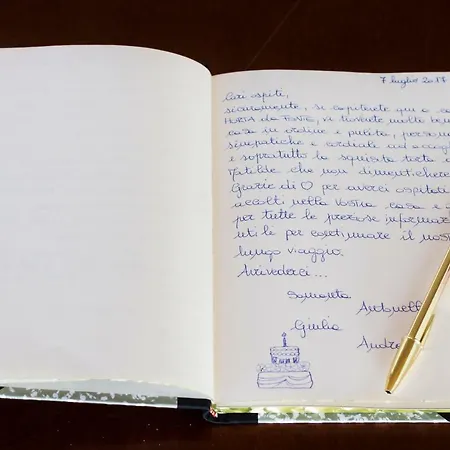 7 luglio 2017
Cari ospiti,
sicuramente, se capiterete qui a
HORTA da FONTE, vi troverete molto
casa in ordine e pulita, persone
simpatiche e cordiali ad
e soprattutto la squisita torta
Matilde che non
Grazie di ♡ per averci ospitati
accolti nella vostra casa e
per tutte le preziose
utili per continuare il
lungo viaggio.
Arrivederci...
Samanta
Giulia